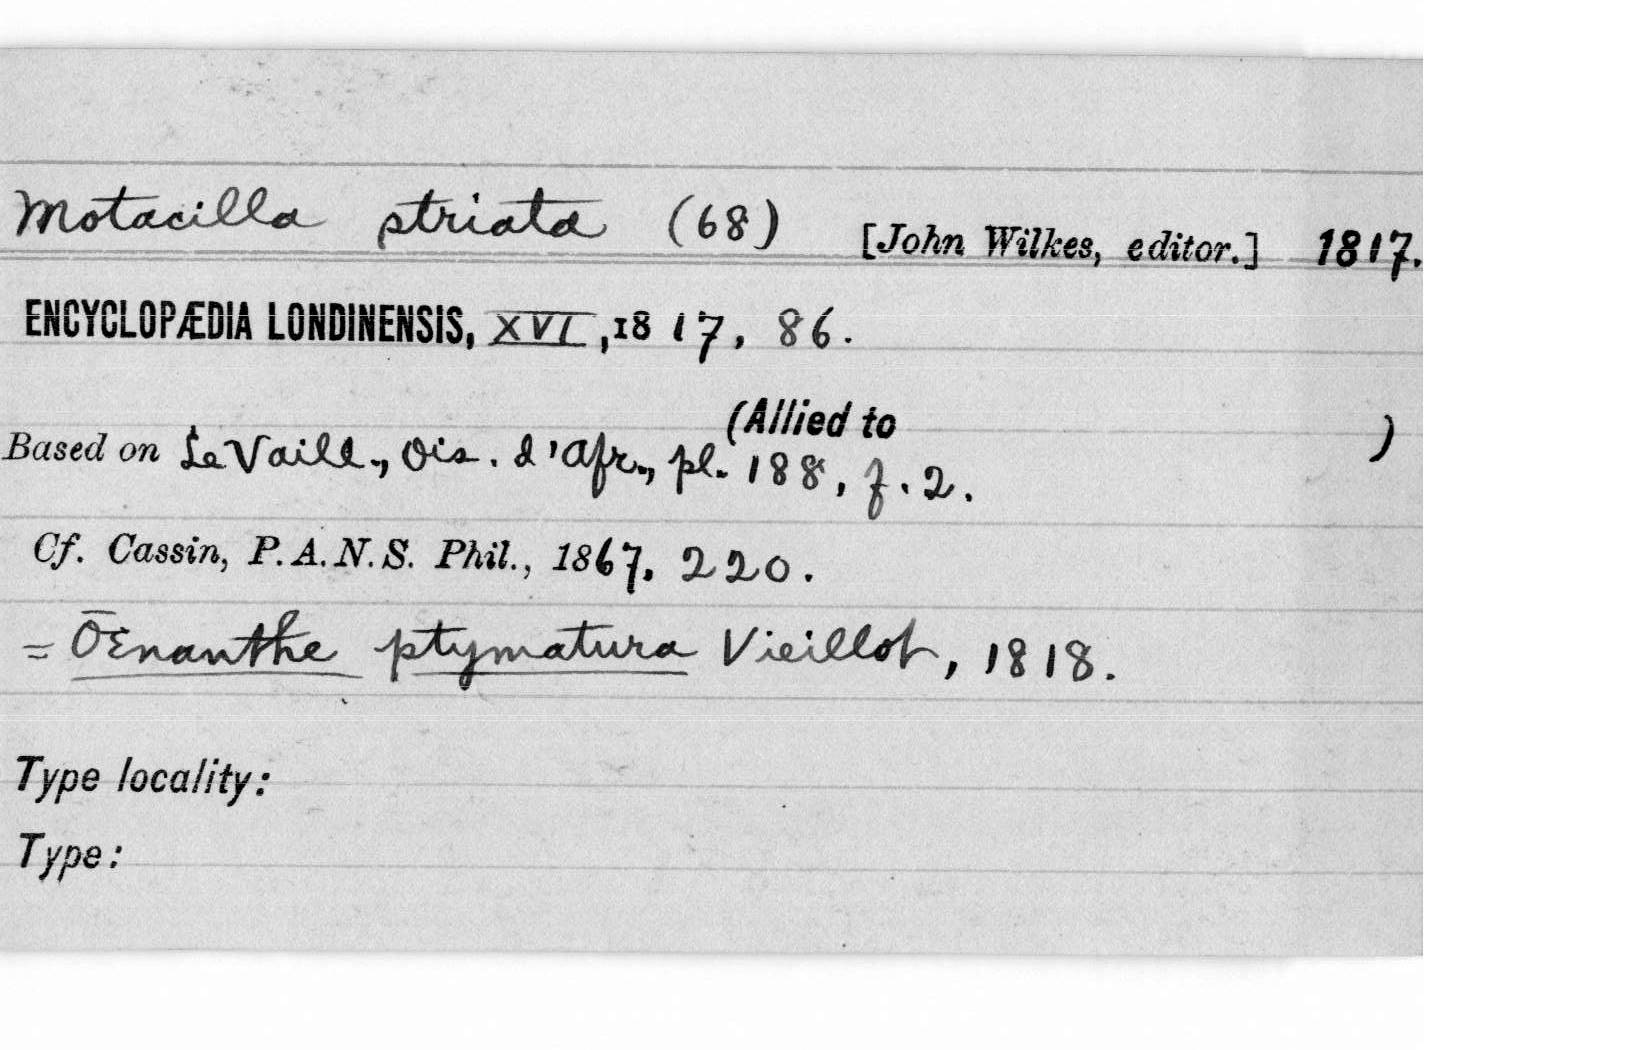 Motacilla striata (68) [John Wilkes, editor.] 1817.
ENCYCLOPÆDIA LONDINENSIS, XVI, 1817, 86.
(Allied to )
Based on LeVaill., Ois. d'Afr., pl. 188, f. 2.
Cf. Cassin, P.A.N.S. Phil., 1867, 220.
= Œnanthe ptymatura Vieillot, 1818.
Type locality:
Type: